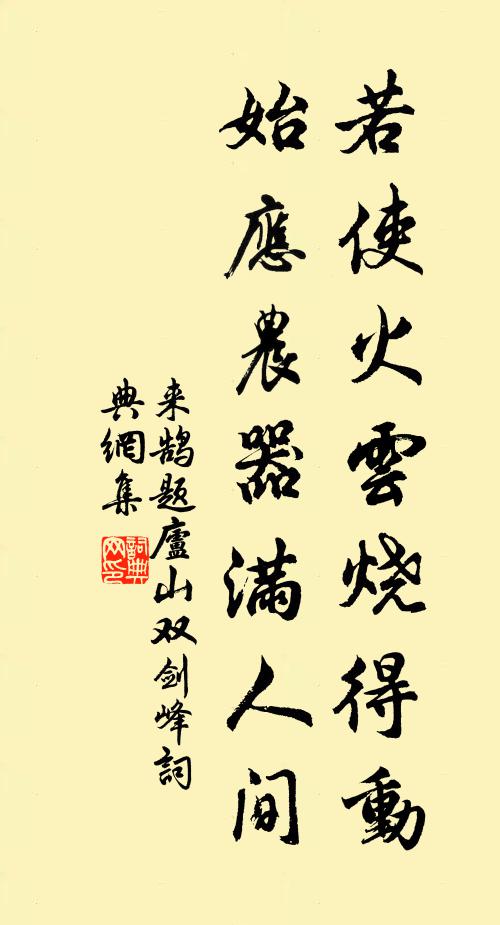 若使火雲烧得動
始應農器滿人间
来鹄题廬山双剑峰詞
典網集
詞典网印